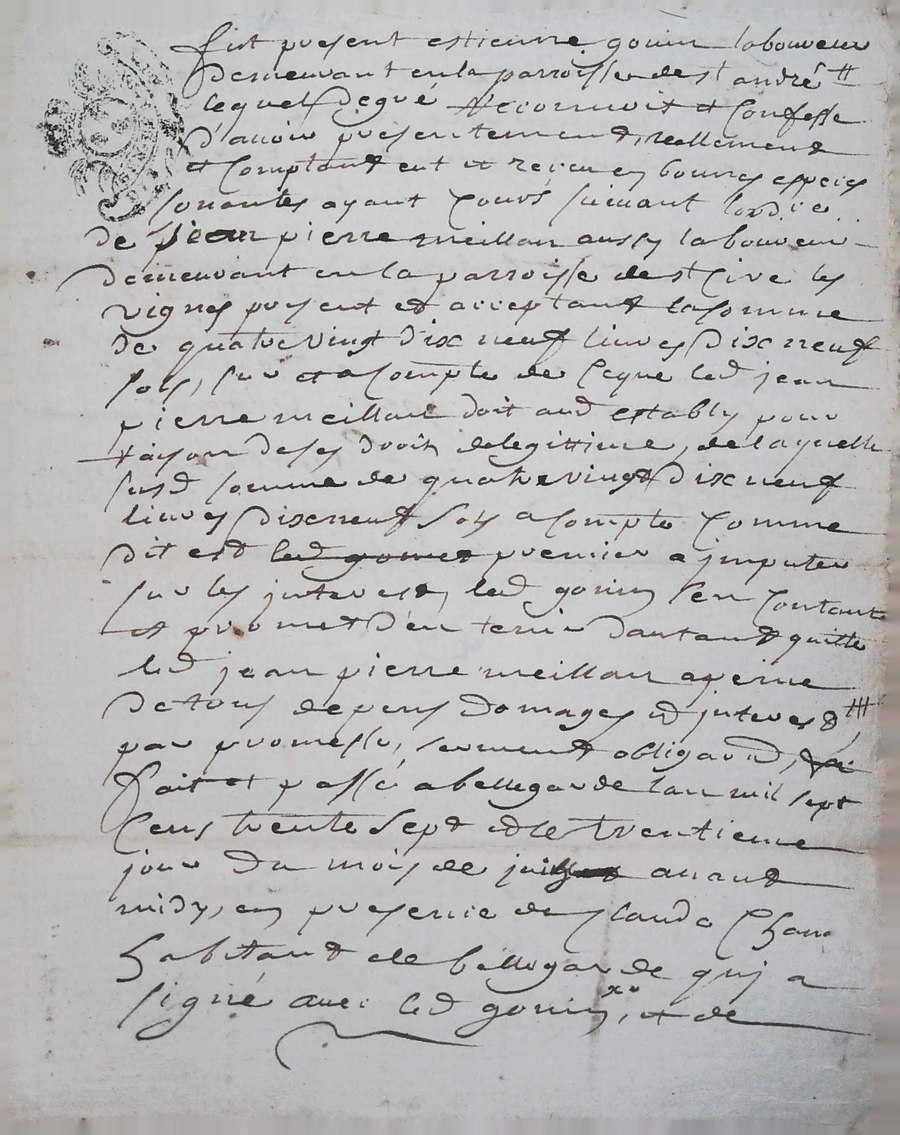 fut present estienne gonin laboureur
demeurant en la parroisse de st andré
lequel de gré reconnoit et confesse
d'avoir presentement, reellement
et comptant eut et receu en bonnes especes
sonnantes ayant cours suivant lord.ce
de jean pierre meillan aussy laboureur
demeurant en la parroisse de st Cire les
vignes present et acceptant la somme
de quatrevingt dix neuf livres dix neuf
sols, sur et a compte de ce que led jean
pierre meillan doit aud estably pour
raison de ses droits de legittime, de laquelle
susd somme de quatrevingt dix neuf
livres dix neuf sols a compte comme
dit est led gonin premier a imputer
sur les interest, led gonin s'en contant
et promet d'en tenir dautant quitte
led jean pierre meillan a peine
de tous depens domages et interest
par promesse, serment obligaond,
fait et passé a bellegarde lan mil sept
cens trente sept et le trentieme
jour du mois de juin avant
midy, en presence de claude
habitant de bellegarde qui a
signé avec led gonin, et de